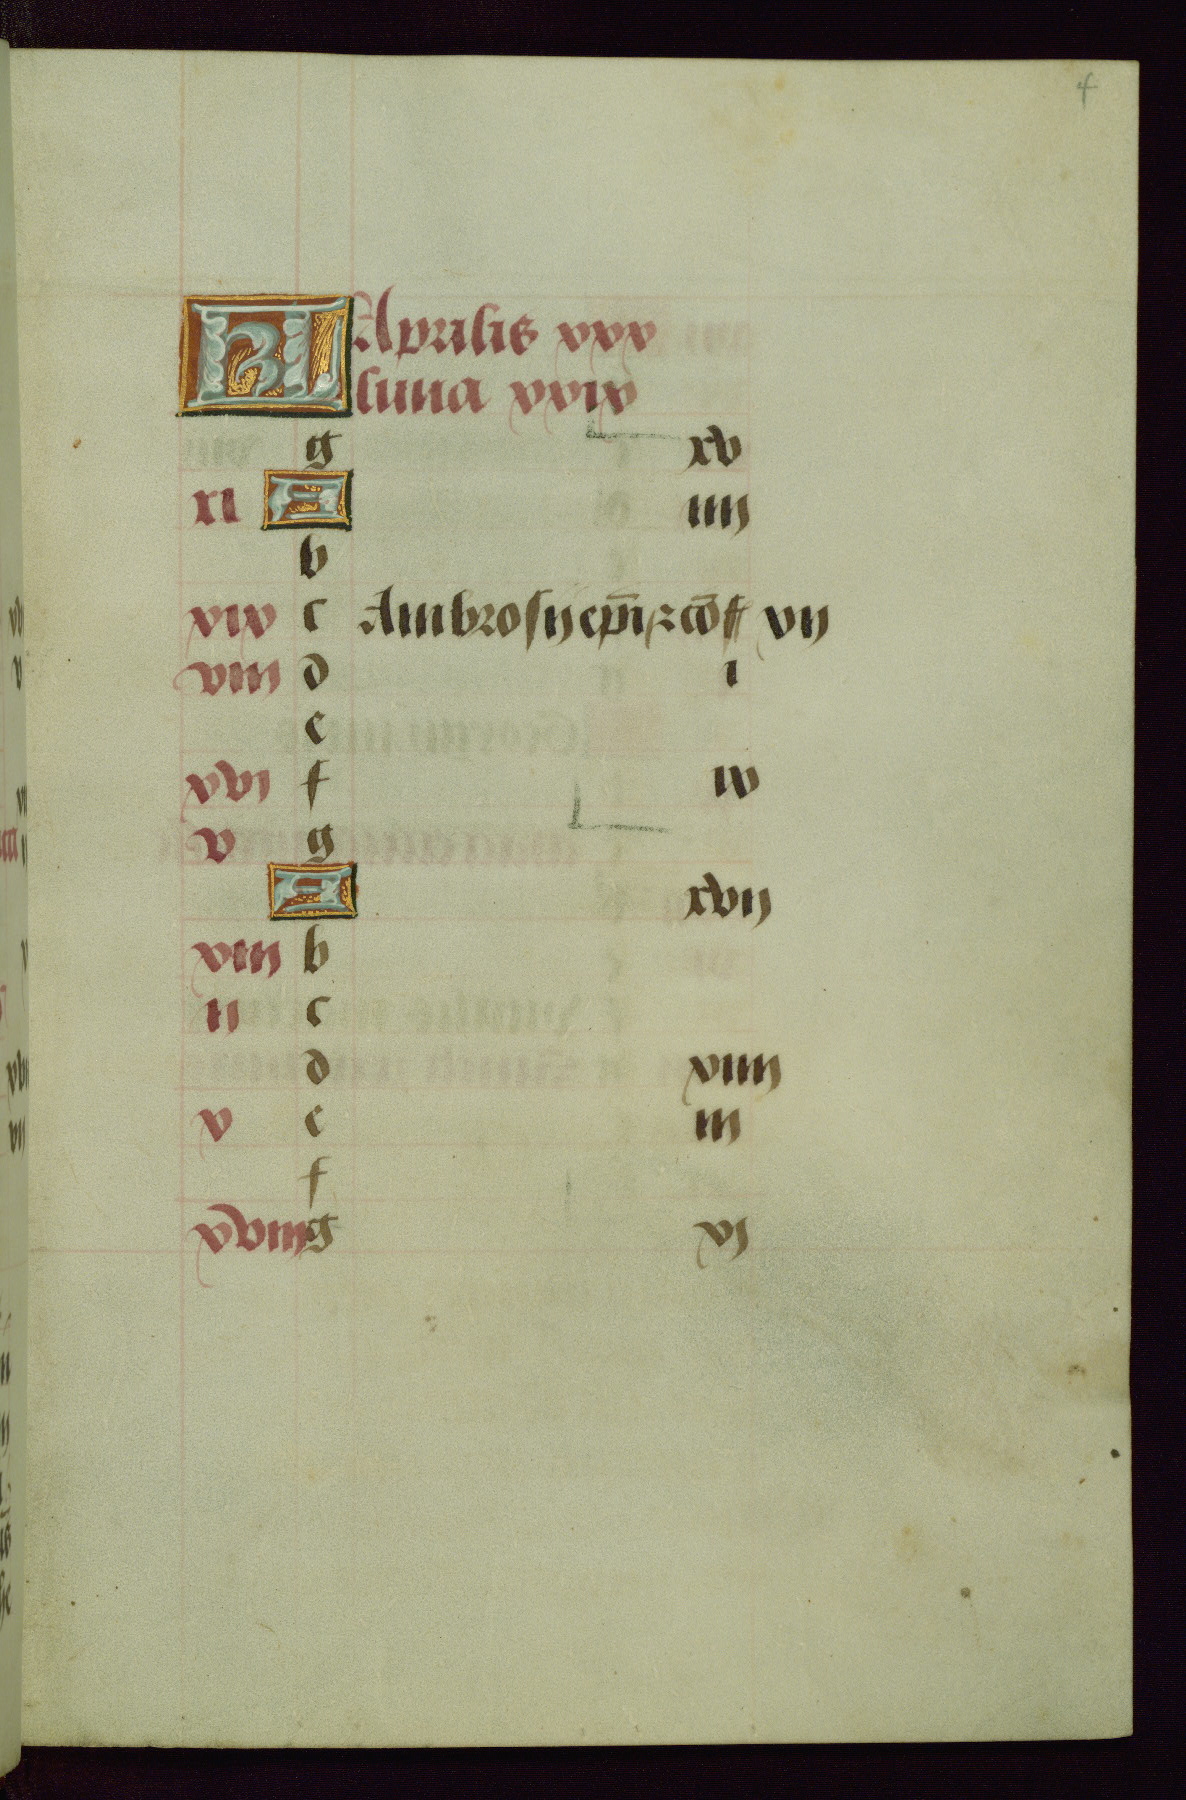 4
KL Aprilis xxx
luna xxix
g xv
xi A iiij
b
xix c Ambrosij ep̄i ⁊ cōf vij
viii d i
e
xvi f ix
v g
A xvij
xiii b
ij c
d xiiij
v e iij
f
xviij g vj